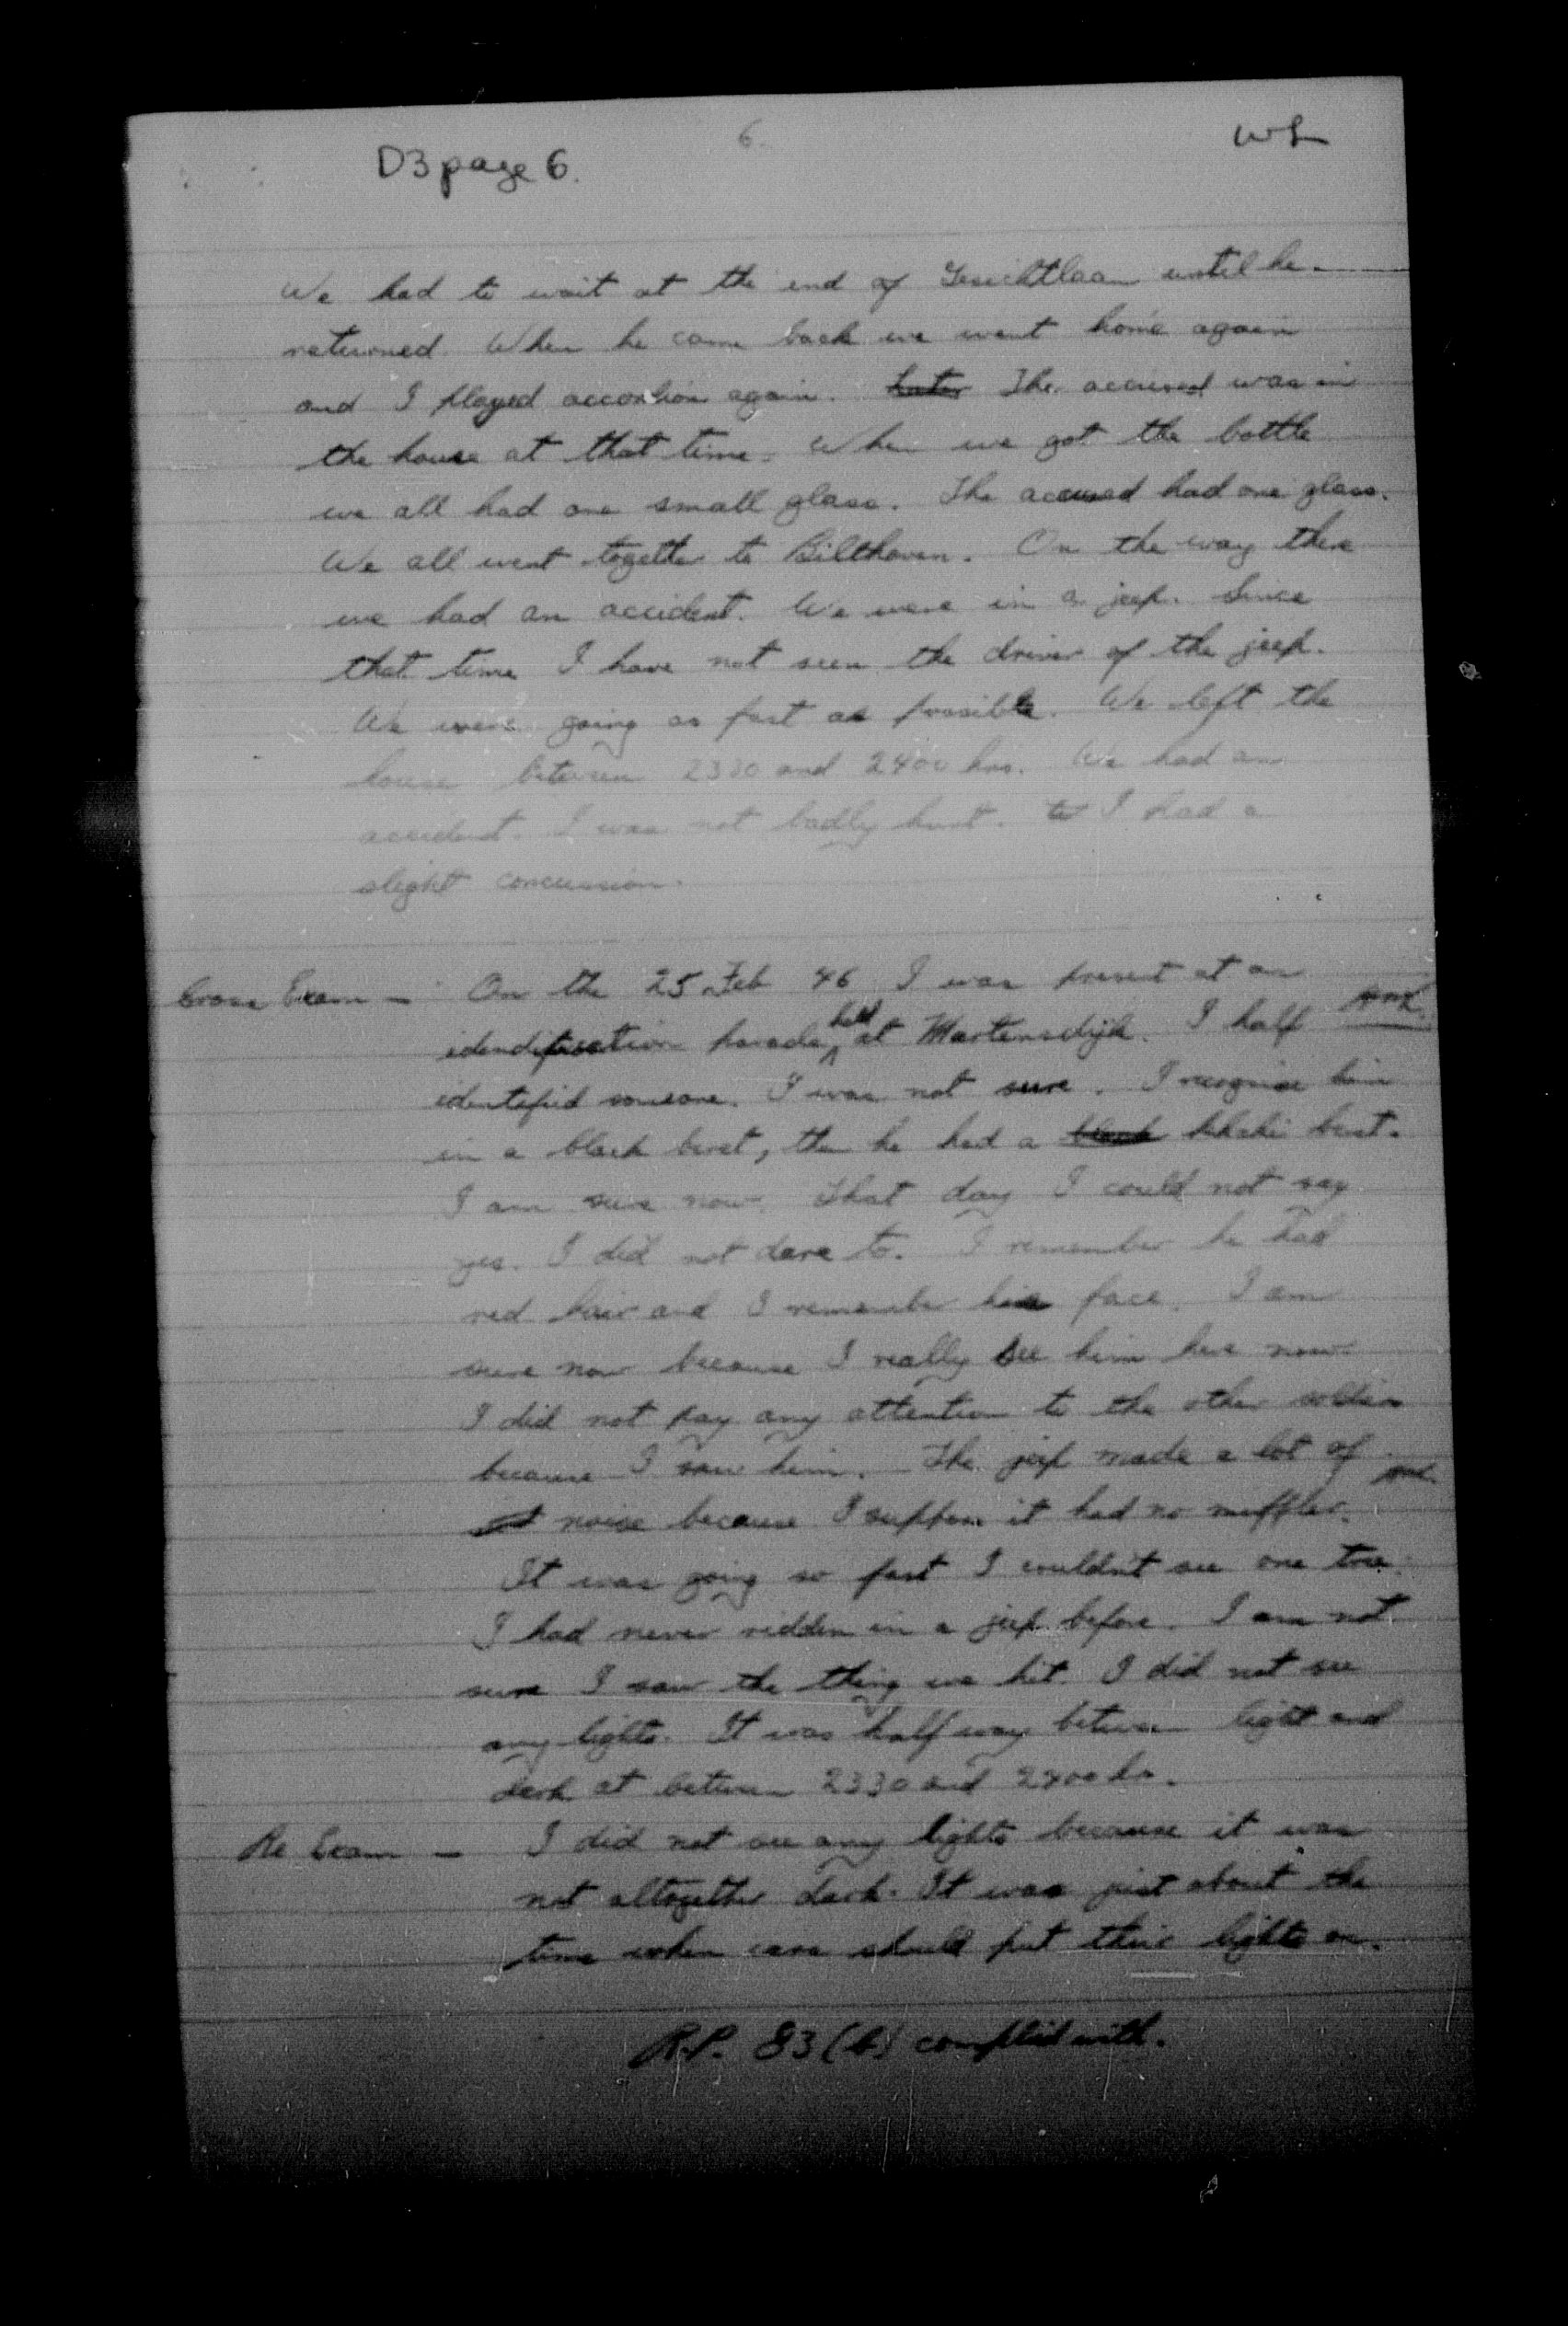 6.
D3 page 6.
WL
We had to wait at the end of Gezichtlaan until he
returned. When he came back we went home again
and I played accordion again. Later The accused was in
the house at that time. When we got the bottle
we all had one small glass. The accused had one glass.
We all went together to Bilthoven. On the way there
we had an accident. We were in a jeep. Since
that time I have not seen the driver of the jeep.
We were going as fast as possible. We left the
house between 2330 and 2400 hrs. We had an
accident. I was not badly hurt. I had a
slight concussion.
Cross Exam — On the 25 Feb 46 I was present at an
identification parade held at Martensdijk. I half
identified someone. I was not sure. I recognise him
in a black beret, then he had a black khaki beret.
I am sure now. That day I could not say
yes. I did not dare to. I remember he had
red hair and I remember his face. I am
sure now because I really see him here now.
I did not pay any attention to the other soldiers
because I saw him. The jeep made a lot of
noise because I suppose it had no muffler.
It was going so fast I couldn't see one tree.
I had never ridden in a jeep before. I am not
sure I saw the thing we hit. I did not see
any lights. It was half way between light and
dark at between 2330 and 2400 hrs.
Re Exam — I did not see any lights because it was
not altogether dark. It was just about the
time when cars should put their lights on.
R.P. 83 (b) complied with.